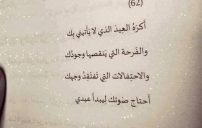 (62)
أكرَهُ العِيدَ الذي لا يَأتيني بِك
والفَرحة التي يَنقصها وجودُك
والاحتِفالات التي تَفتَقِدُ وجهك
أحتاج صوتك لِيبدأ عيدي